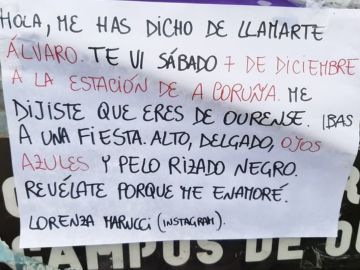 HOLA, ME HAS DICHO DE LLAMARTE
ÁLVARO. TE VI SÁBADO 7 DE DICIEMBRE
A LA ESTACIÓN DE A CORUÑA. ME
DIJISTE QUE ERES DE OURENSE. IBAS
A UNA FIESTA. ALTO, DELGADO, OJOS
AZULES Y PELO RIZADO NEGRO.
REVÉLATE PORQUE ME ENAMORÉ.
LORENZA MARUCCI (INSTAGRAM).
CAMPUS DE O